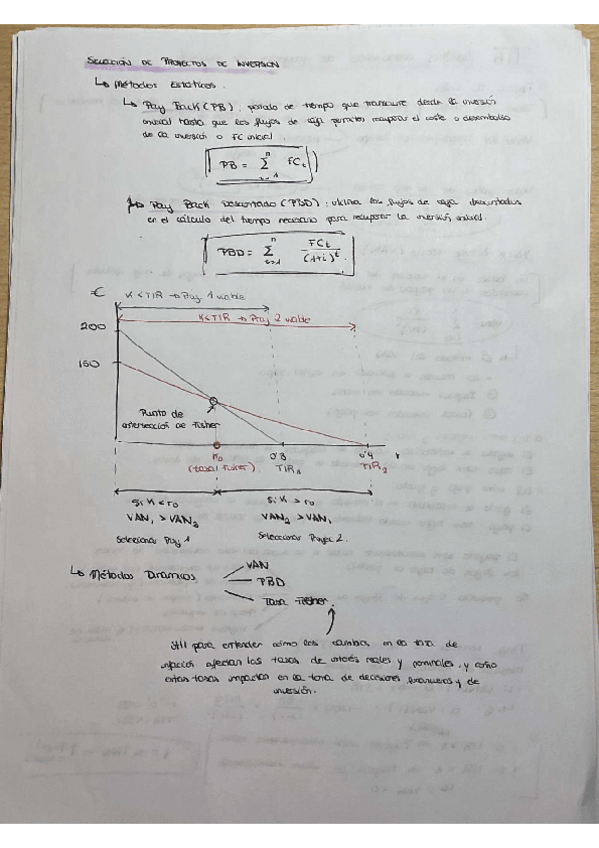 SELECCIÓN DE PROYECTOS DE INVERSIÓN
↳ Métodos Estáticos.
↳ Pay Back (PB): periodo de tiempo que transcurre desde la inversión
inicial hasta que los flujos de caja permiten recuperar el coste o desembolso
de la inversión o FC inicial
PB = Σ FCt
n
t=1
↳ Pay Back Descontado (PBD): utiliza los flujos de caja descontados
en el cálculo del tiempo necesario para recuperar la inversión inicial.
PBD = Σ FCt / (1+i)^t
n
t=1
€
K<TIR → Proy 1 viable
K<TIR → Proy 2 viable
200
150
Punto de
intersección de Fisher
r0
(tasa Fisher)
0'3
TIR1
0'4
TIR2
r
Si K < r0
VAN1 > VAN2
Seleccionar Proy 1
Si K > r0
VAN2 > VAN1
Seleccionar Proyec 2.
↳ Métodos Dinámicos
VAN
PBD
Tasa Fisher.
útil para entender cómo los cambios en la tasa de
inflación afectan las tasas de interés reales y nominales, y cómo
estas tasas impactan en la toma de decisiones financieras y de
inversión.